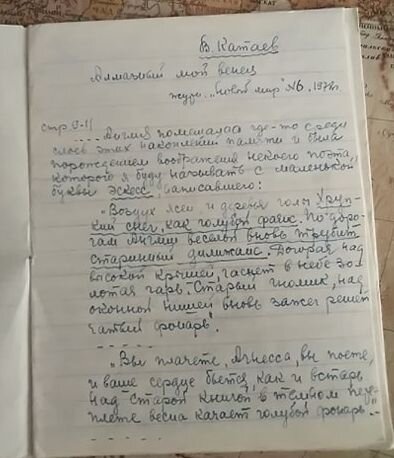 В. Катаев
Алмазный мой венец
журн. „Новый мир" №6, 1978г.
стр. 9-11
.... Англия помещалась где-то среди
слоев этих накоплений памяти и была
порождением воображения некоего поэта,
которого я буду называть с маленькой
буквы эскесс, написавшего:
„Воздух ясен и деревья голы Хруп-
кий снег, как голубой фаянс. По доро-
гам Англии веселой вновь трубит
старинный дилижанс. Догорая над
высокой крышей, гаснет в небе зо-
лотая гарь. Старый гномик, над
оконной нишей вновь зажег решет-
чатый фонарь".
- - - - - -
„Вы плачете, Агнесса, вы поете,
и ваше сердце бьется, как и встарь
над старой книгой в темном пере-
плете весна качает голубой фонарь..."
- - - - -